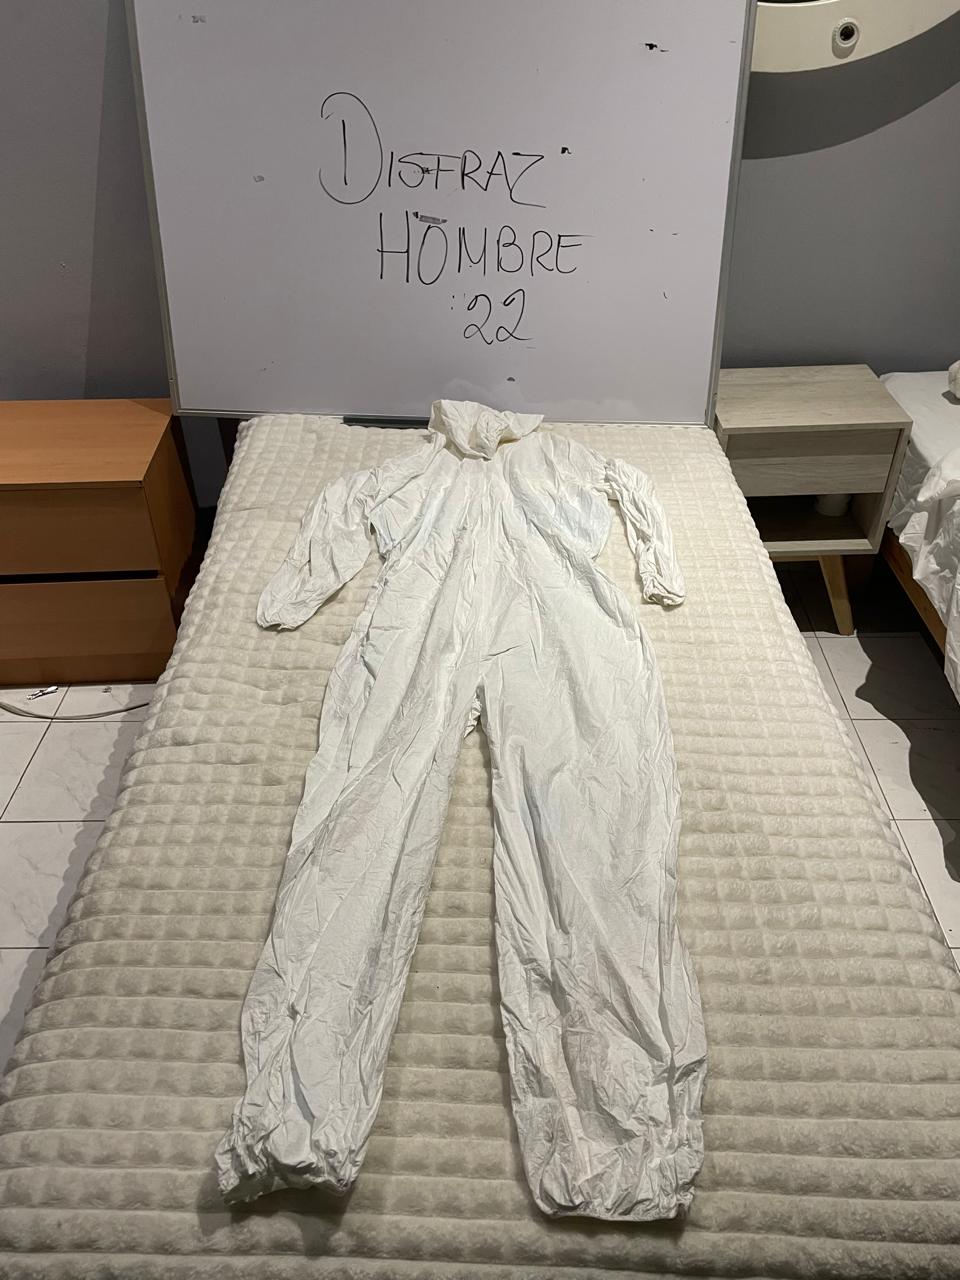 DISFRAZ
HOMBRE
22